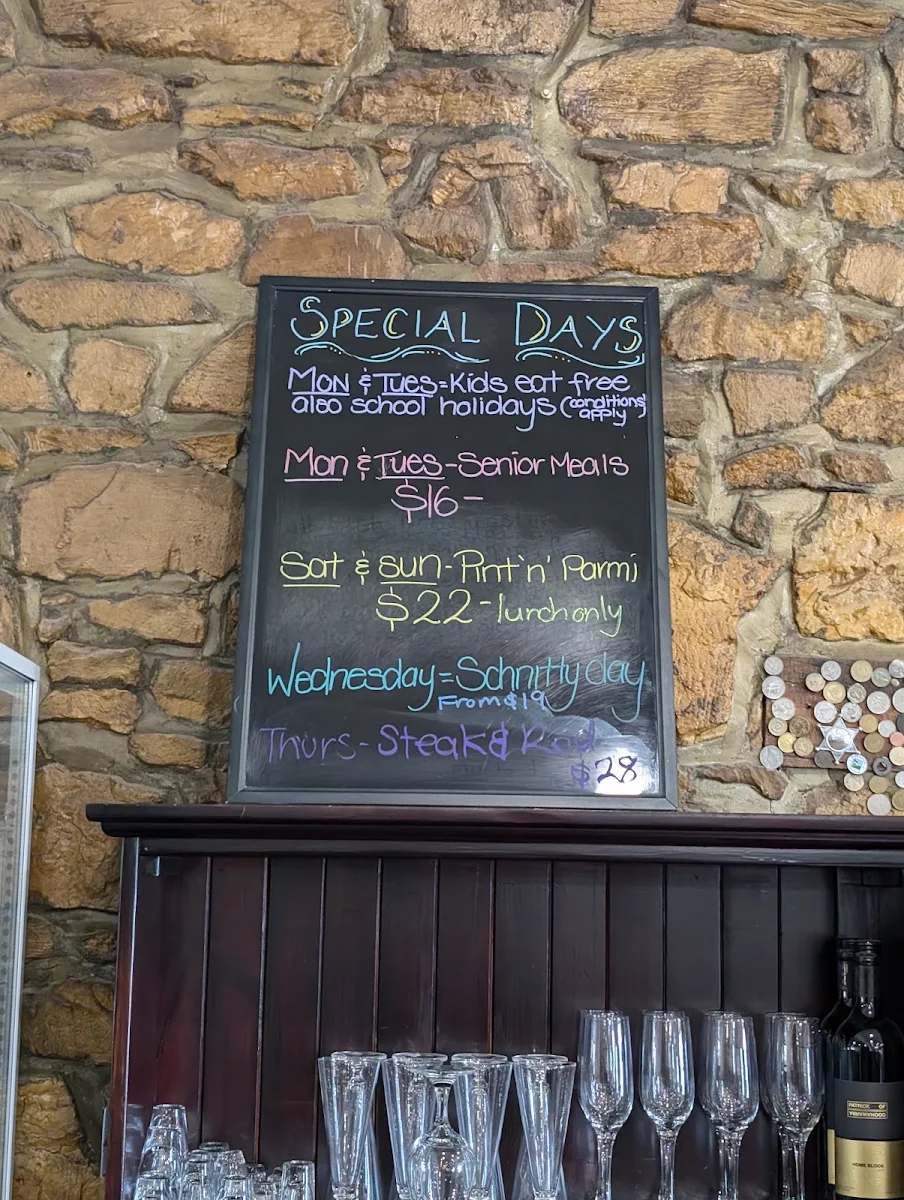 SPECIAL DAYS
Mon & Tues=Kids eat free
also school holidays (conditions apply)
Mon & Tues-Senior Meals
$16-
Sat & Sun-Pint 'n' Parmi
$22-lunch only
Wednesday=Schnitty day
From $19
Thurs-Steak & Red
$28
PATRICK OF
COONAWARRA
HOME BLOCK